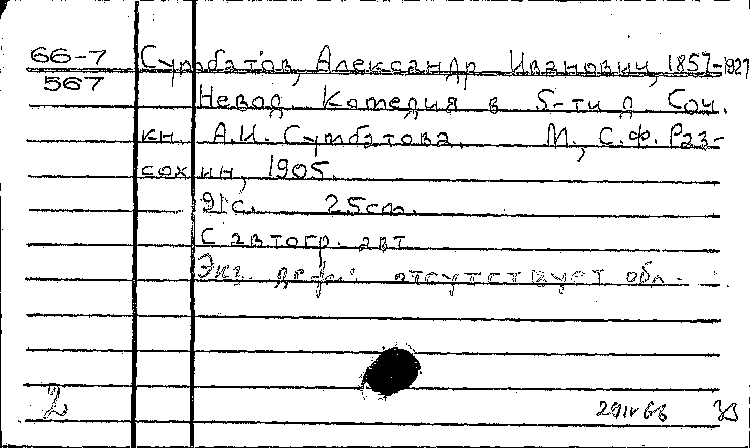 66-7 Сумбатов, Александр Иванович, 1857-1927
567
Невод. Комедия в 5-ти д. Соч.
кн. А.И. Сумбатова. М., С.Ф. Раз-
сохин, 1905.
91 с. 25см.
С автогр. авт.
Экз. деф.: отсутствует обл.
2 29 IV 66